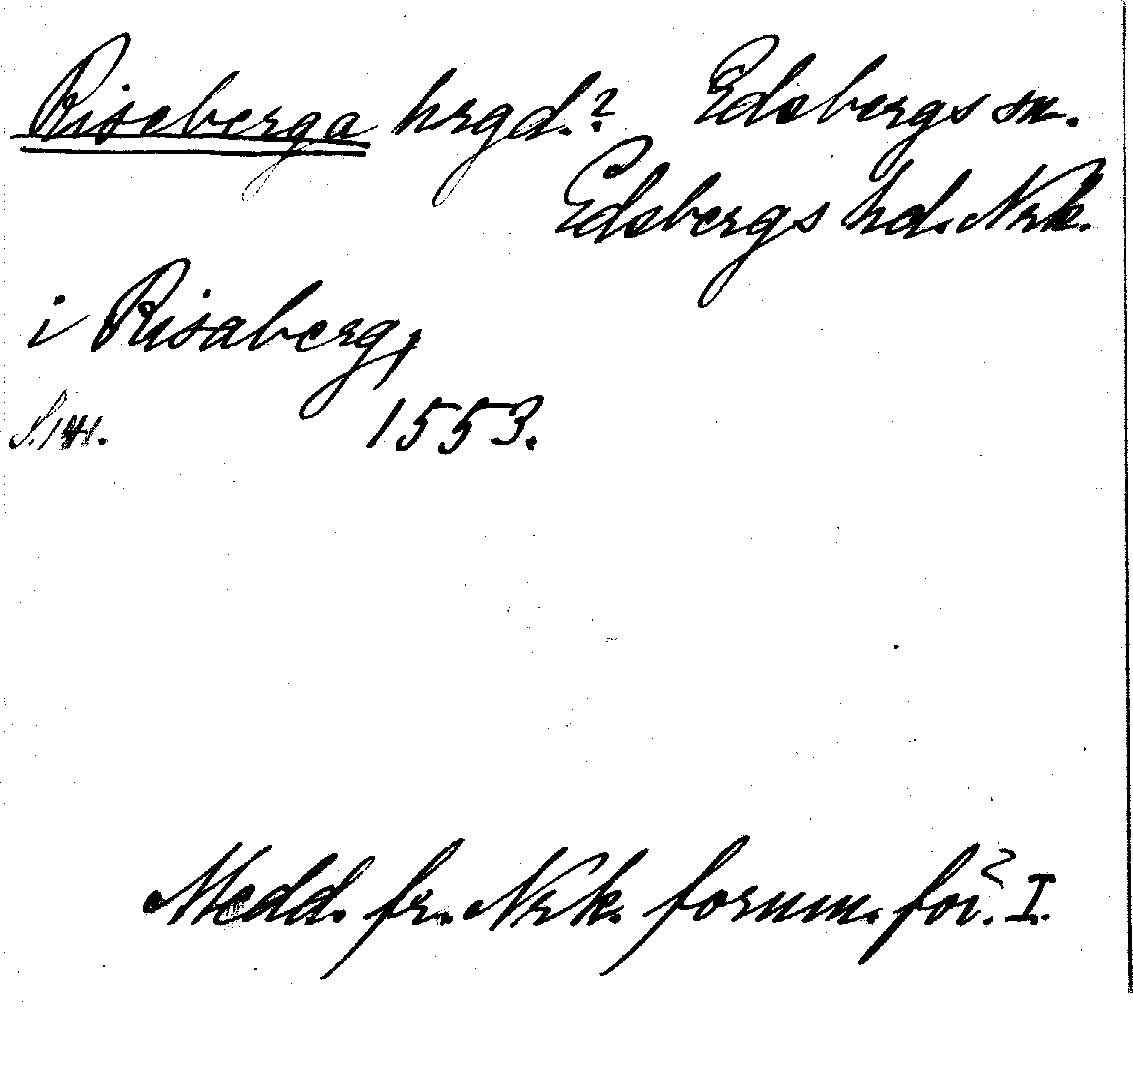 Riseberga hrgd.? Edsbergs sn.
Edsbergs hd. Nrk.
i Risaberg,
1553.
Medd. fr. Nrk. fornm. för. I.